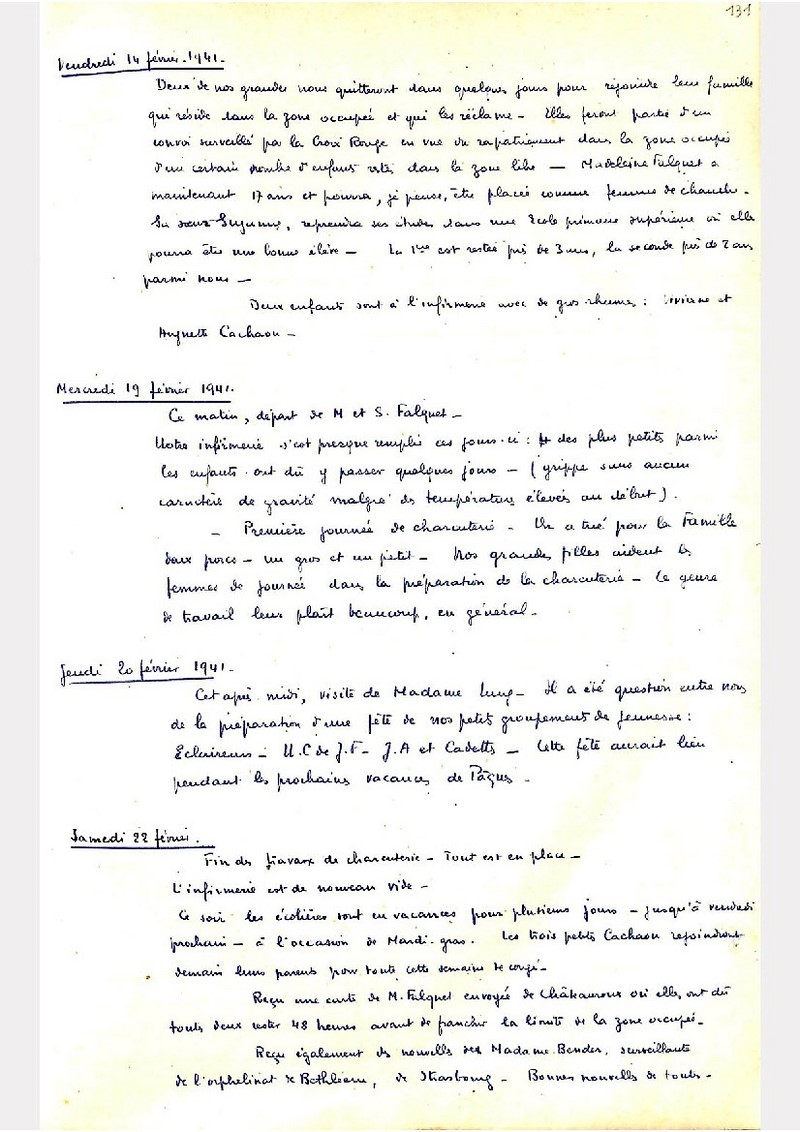 131
Vendredi 14 février 1941.
Deux de nos grandes nous quitteront dans quelques jours pour rejoindre leur famille
qui réside dans la zone occupée et qui les réclame - Elles feront partie d'un
convoi surveillé par la Croix Rouge en vue du rapatriement dans la zone occupée
d'un certain nombre d'enfants restés dans la zone libre — Madeleine Falquet a
maintenant 17 ans et pourra, je pense, être placée comme femme de chambre.
Sa soeur Suzanne, reprendra ses études dans une Ecole primaire supérieure où elle
pourra être une bonne élève — La 1ère est restée près de 3 ans, la seconde près de 2 ans
parmi nous —
Deux enfants sont à l'infirmerie avec de gros rhumes : Vivienne et
Huguette Cachaou —
Mercredi 19 février 1941.
Ce matin, départ de M et S. Falquet —
Notre infirmerie s'est presque remplie ces jours-ci : 4 des plus petits parmi
les enfants ont dû y passer quelques jours — (grippe sans aucun
caractère de gravité malgré des températures élevées au début).
— Première journée de charcuterie - On a tué pour la Famille
deux porcs — un gros et un petit — Nos grandes filles aident les
femmes de journée dans la préparation de la charcuterie — Ce genre
de travail leur plaît beaucoup, en général —
Jeudi 20 février 1941 —
Cet après-midi, visite de Madame Lung - Il a été question entre nous
de la préparation d'une fête de nos petits groupements de jeunesse :
Eclaireurs — U.C de J.F — J.A et Cadettes — Cette fête aurait lieu
pendant les prochaines vacances de Pâques -
Samedi 22 février.
Fin des travaux de charcuterie — Tout est en place —
L'infirmerie est de nouveau vide —
Ce soir les écolières sont en vacances pour plusieurs jours — jusqu'à vendredi
prochain — à l'occasion de Mardi-gras. Les trois petits Cachaou rejoindront
demain leurs parents pour toute cette semaine de congé —
Reçu une carte de M. Falquet envoyée de Châteauroux où elles ont dû
toutes deux rester 48 heures avant de franchir la limite de la zone occupée —
Reçu également des nouvelles de Madame Bender, surveillante
de l'orphelinat de Bethléem, de Strasbourg — Bonnes nouvelles de toutes -